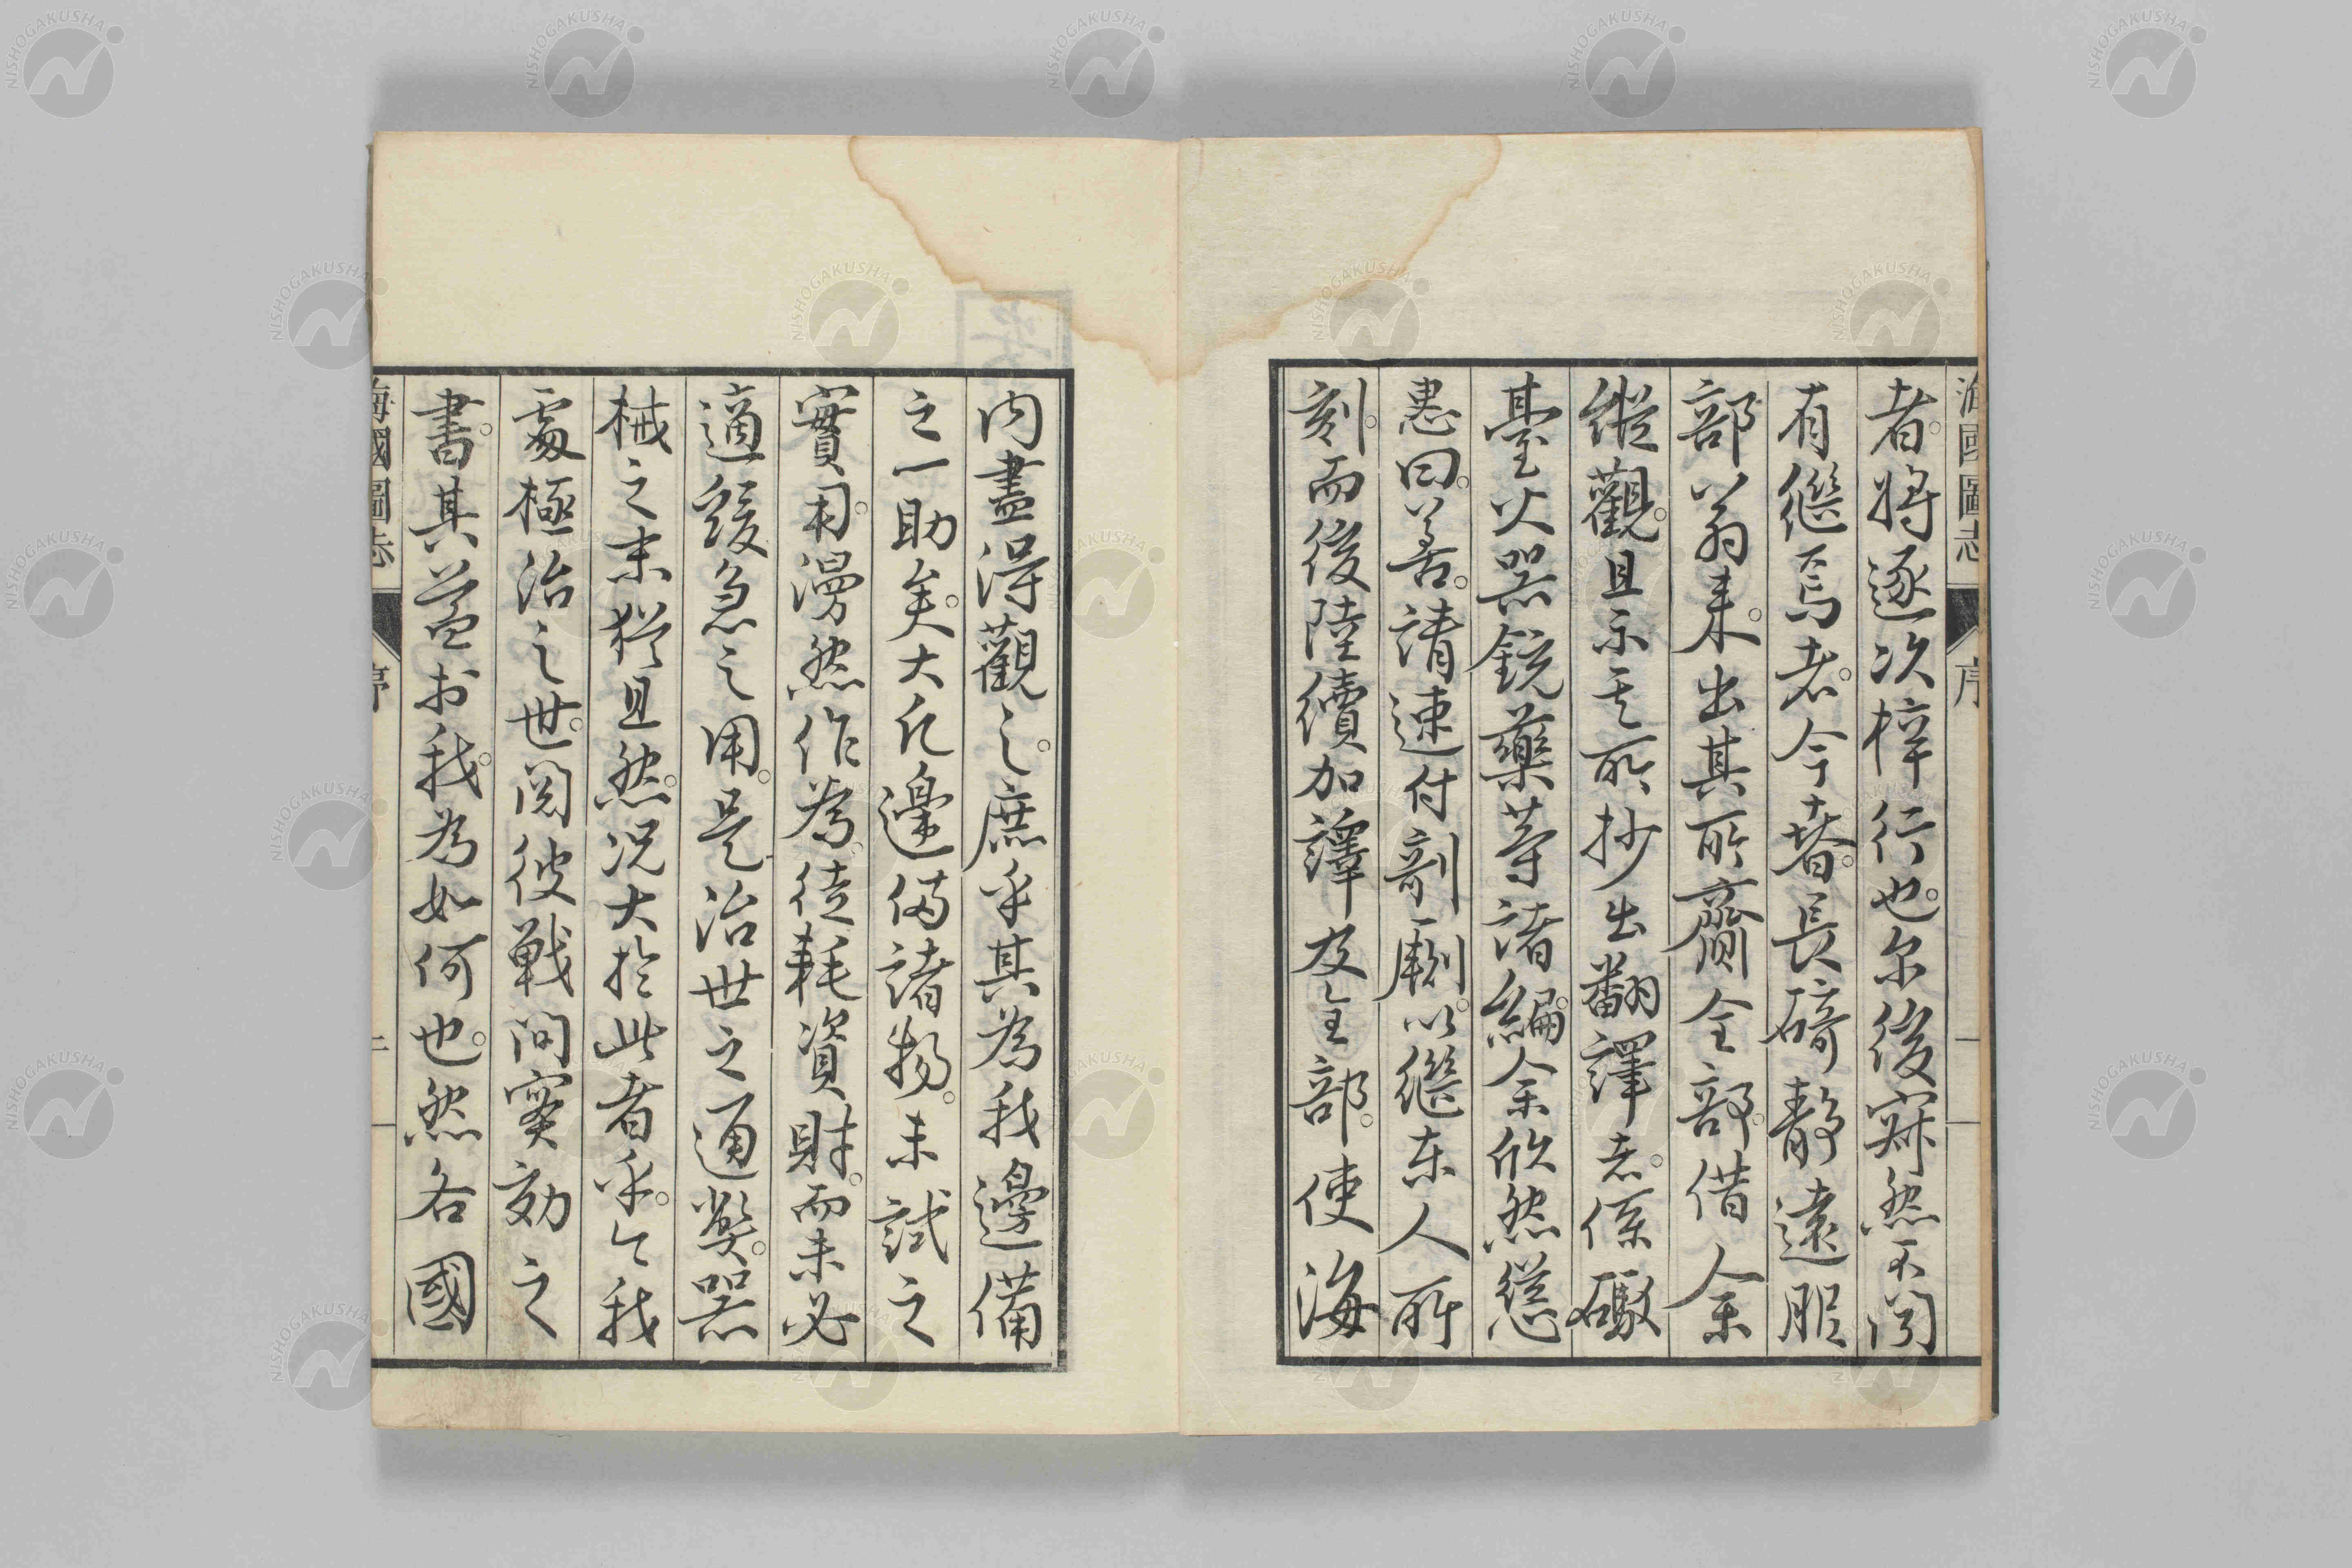 海國圖志
序
者。將逐次梓行也。尓後寂然不聞
有繼焉者。今春。長碕靜遠服
部翁来。出其所齎全部。借余
縱觀。且示其所抄出翻譯者。係礮
臺火器銃藥等諸編。余欣然慫
慂曰。善。請速付剞劂。以繼東人所
刻。而後陸續加譯及全部。使海
內盡得觀之。庶乎其為我邊備
之一助矣。大凡邊備諸物。未試之
實用。漫然作為。徒耗資財。而未必
適緩急之用。是治世之通弊。器
械之末猶且然。况大於此者乎。今我
處極治之世。閱彼戰間實効之
書。其益於我。為如何也。然各國
海國圖志
序
NISHOGAKUSHA